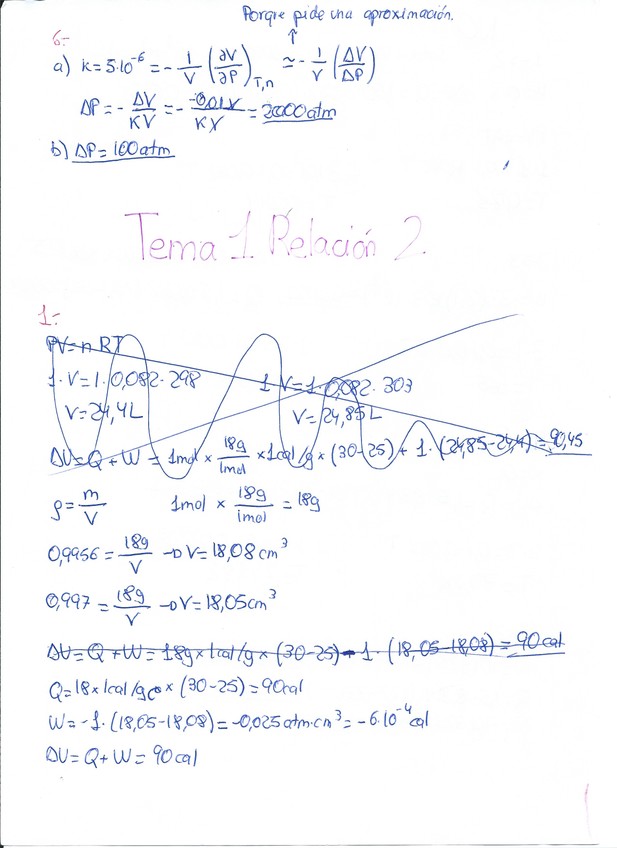 Porque pide una aproximación.
↑
6.-
a) k = 5·10⁻⁶ = - 1/V (∂V/∂P)T,n ≃ - 1/V (ΔV/ΔP)
ΔP = - ΔV/KV = - -0,01V/KV = 2000 atm
b) ΔP = 100 atm
Tema 1 Relación 2.
1.-
PV = nRT
1·V = 1·0,082·298 1·V = 1·0,082·303
V = 24,4 L V = 24,85 L
ΔU = Q + W = 1mol × 18g/1mol × 1cal/g × (30-25) + 1·(24,85-24,4) = 90,45
ρ = m/V 1mol × 18g/1mol = 18g
0,9956 = 18g/V → V = 18,08 cm³
0,997 = 18g/V → V = 18,05 cm³
ΔU = Q + W = 18g × 1cal/g × (30-25) - 1·(18,05-18,08) = 90 cal
Q = 18 × 1cal/gº × (30-25) = 90 cal
W = -1·(18,05-18,08) = -0,025 atm·cm³ = -6·10⁻⁴ cal
ΔU = Q + W = 90 cal